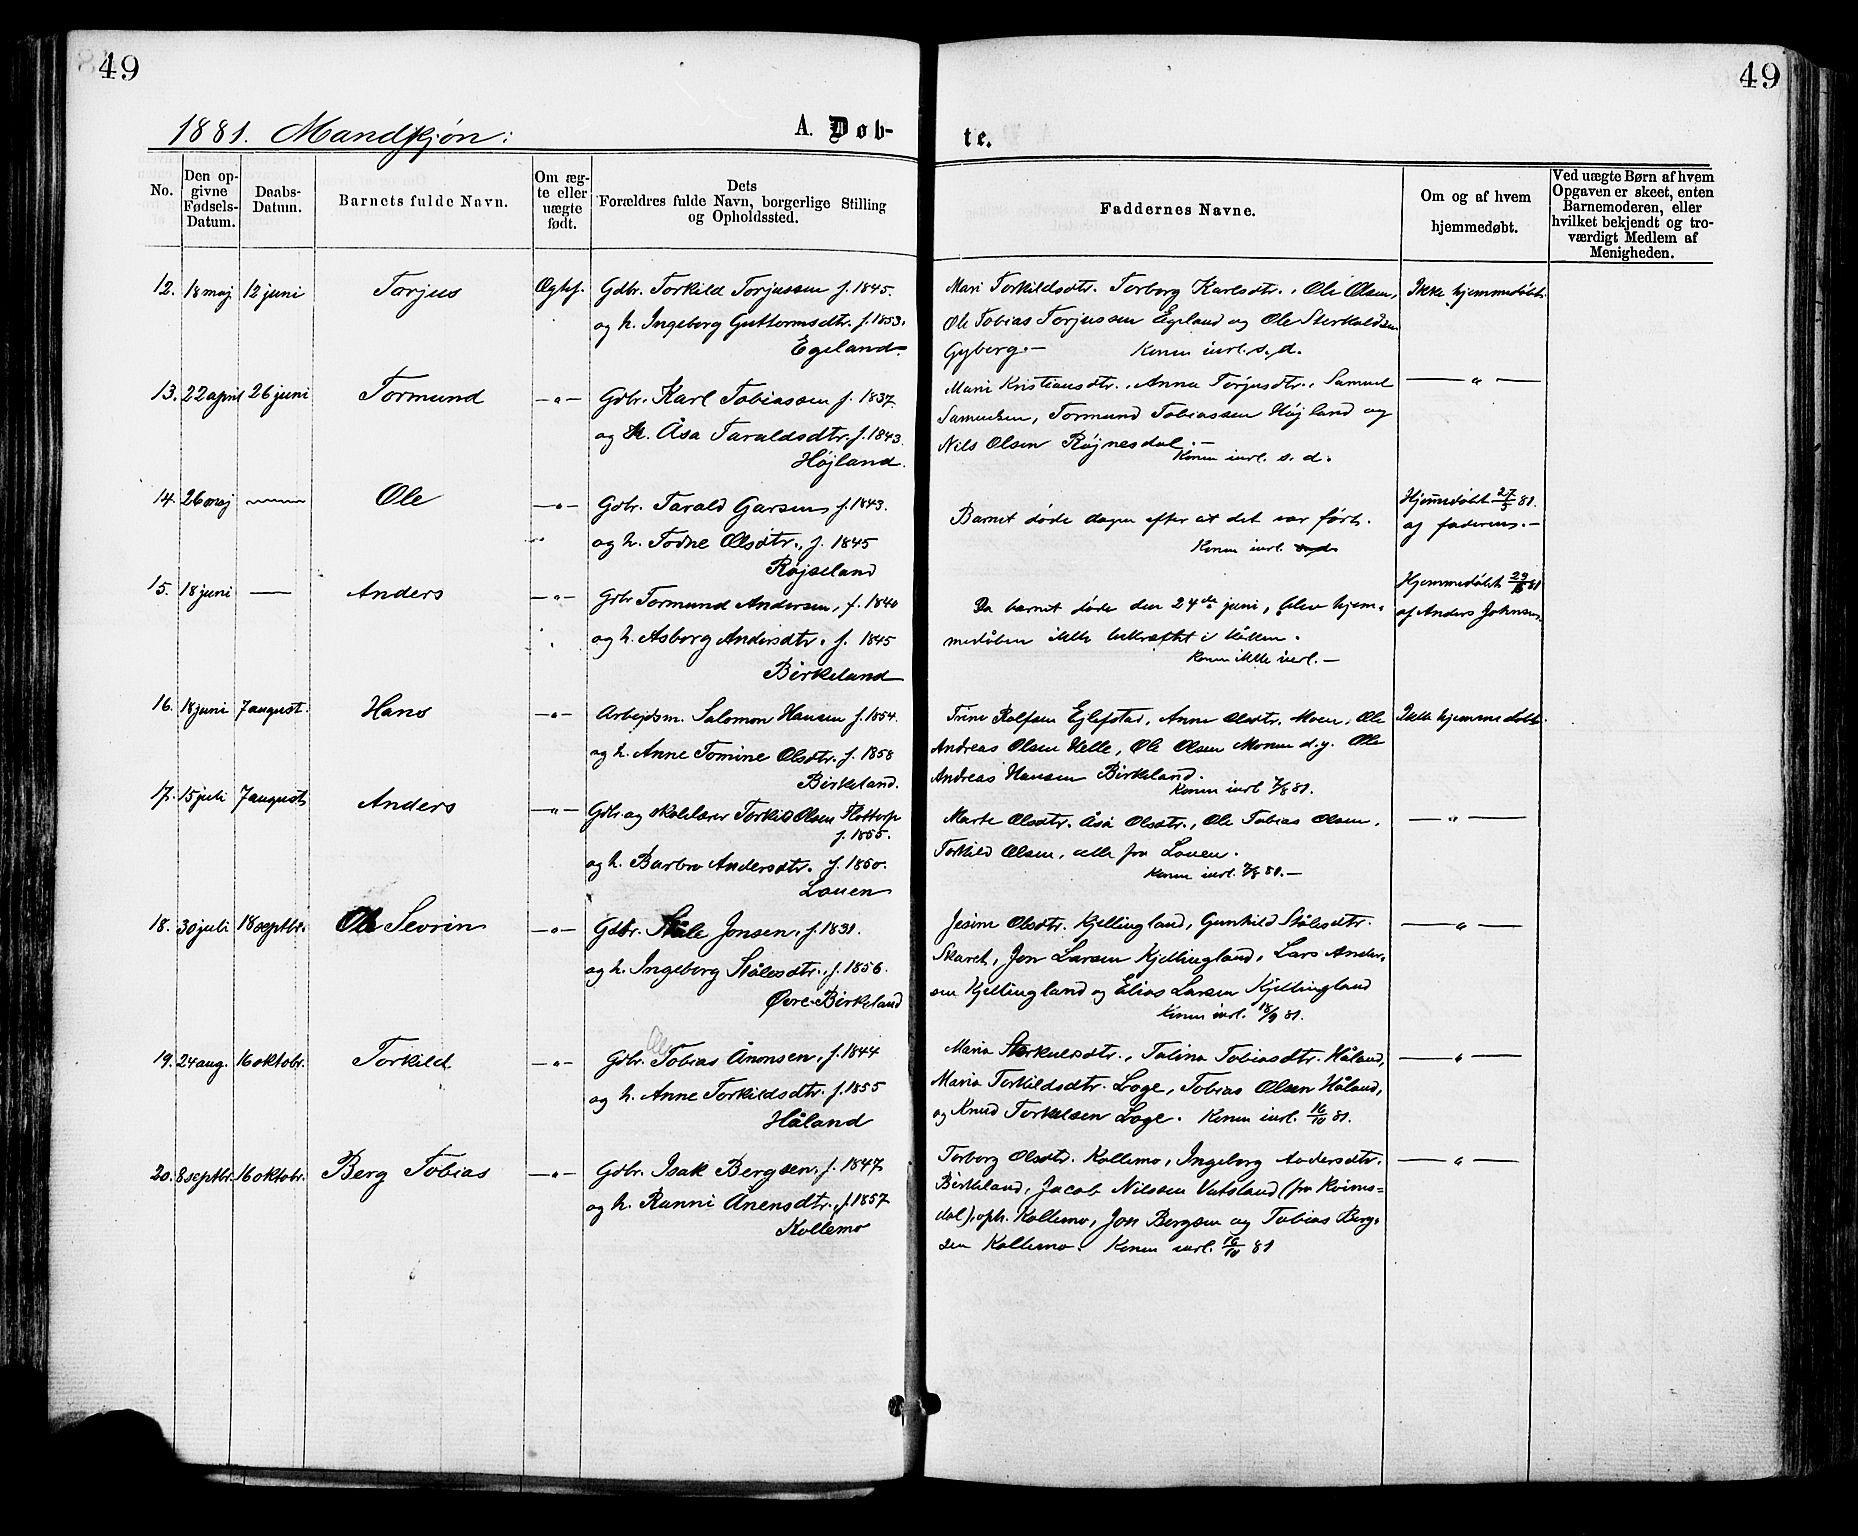 49
49
1881. Mandkjøn:
A. Døb-
te.
No.
Den op-
givne
Fødsels-
Datum.
Daabs-
Datum.
Barnets fulde Navn.
Om æg-
te eller
uægte
født.
Dets
Forældres fulde Navn, borgerlige Stilling
og Opholdssted.
Faddernes Navne.
Om og af hvem
hjemmedøbt.
Ved uægte Børn af hvem
Opgaven er skeet, enten
Barnemoderen, eller
hvilket bekjendt og tro-
værdigt Medlem af
Menigheden.
12. 18 maj 12 juni Torjus Ægtef. Gdbr. Torkild Torjussen f. 1845.
og h. Ingeborg Guttormsdtr. f. 1853.
Egeland.
Mari Torkildsdtr. Torborg Karlsdtr., Ole Olsen,
Ole Tobias Torjussen Egeland og Ole Sterkoldsen
Gyberg.— Konen iurl. s. d.
Ikke hjemmedøbt.
13. 22 april 26 juni Tormund —"— Gdbr. Karl Tobiassen f. 1837.
og h. Åsa Taraldsdtr. f. 1843.
Højland.
Mari Kristiansdtr., Anna Torjusdtr., Samuel
Samuelsen, Tormund Tobiassen Højland og
Nils Olsen Røjnesdal.—
Konen iurl. s. d.
— " —
14. 26 maj —— Ole —"— Gdbr. Tarald Garsen f. 1843.
og h. Todne Olsdtr., f. 1845
Røjseland
Barnet døde dagen efter at det var født.
Konen iurl.
Hjemmedøbt 27/5 81.
af faderen.—
15. 18 juni —— Anders —"— Gdbr Tormund Andersen, f. 1840
og h. Asborg Andersdtr. f. 1845
Birkeland
Da barnet døde den 24de juni, blev hjem-
medåben ikke bekræftet i kirken.
Konen ikke iurl.—
Hjemmedøbt 81
af Anders Johnsen.
16. 18 juni 7 august. Hans —"— Arbejdsm. Salomon Hansen f. 1854.
og h. Anne Tomine Olsdtr. f. 1858
Birkeland.
Trine Rolfsen Ejlefstad, Anne Olsdtr. Moen, Ole
Andreas Olsen Helle, Ole Olsen Monen d.y. Ole
Andreas Hansen Birkeland.
Konen iurl 7/8 81.
Ikke hjemmedøbt.
17. 15 juli 7 august Anders —"— Gdbr og skolelærer Torkild Olsen Flottorp
f. 1855.
og h. Barbro Andersdtr. f. 1850.
Lauen
Marte Olsdtr. Åsa Olsdtr., Ole Tobias Olsen,
Torkild Olsen, alle fra Lauen.
Konen iurl. 7/8 81.—
— " —
18. 30 juli 18 septbr. Ole Sevrin —"— Gdbr. Ståle Jonsen, f. 1831.
og h. Ingeborg Stålesdtr., f. 1856.
Øvre-Birkeland
Jesine Olsdtr. Kjellingland, Gunhild Stålesdtr.
Skaret, Jon Larsen Kjellingland, Lars Ander-
sen Kjellingland og Elias Larsen Kjellingland
Konen iurl. 18/9 81.
— " —
19. 24 aug. 16 oktobr. Torkild —"— Gdbr. Tobias Ånonsen, f. 1844
og h. Anne Torkildsdtr. f. 1855
Håland
Maria Sterkulsdtr., Talina Tobiasdtr. Håland,
Maria Torkildsdtr. Loge, Tobias Olsen Håland,
og Knud Torkelsen Loge. Konen iurl. 16/10 81.
— " —
20. 8 septbr. 16 oktobr. Berg Tobias —"— Gdbr. Isak Bergsen, f. 1847
og h. Ranni Ånensdtr., f. 1857
Kollemo
Torborg Olsdtr. Kollemo, Ingeborg Andersdtr.
Birkeland, Jacob Nilssen Vatsland (fra Kvins-
dal), oph. Kollemo, Jon Bergsen og Tobias Berg-
sen Kollemo. Konen iurl. 16/10 81
— " —